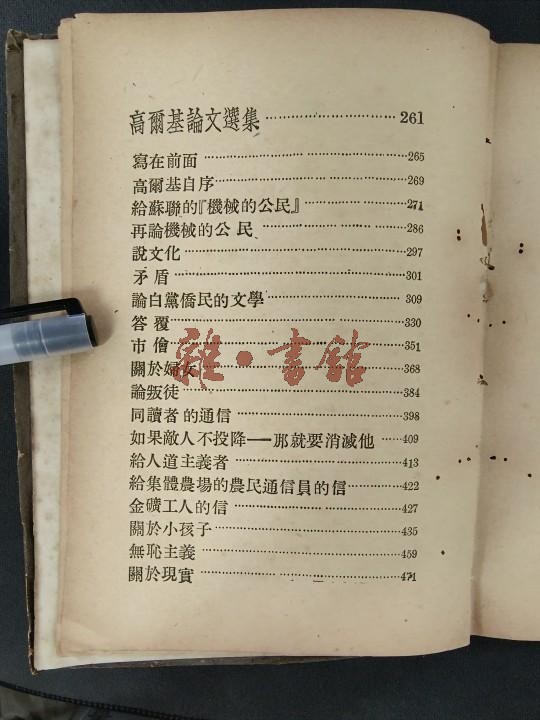 高爾基論文選集 ………………………… 261
寫在前面 ………………………… 265
高爾基自序 ………………………… 269
給蘇聯的『機械的公民』 ………………………… 271
再論機械的公民 ………………………… 286
說文化 ………………………… 297
矛盾 ………………………… 301
論白黨僑民的文學 ………………………… 309
答覆 ………………………… 330
市儈 ………………………… 351
雜·書館
關於婦女 ………………………… 368
論叛徒 ………………………… 384
同讀者的通信 ………………………… 398
如果敵人不投降——那就要消滅他 …… 409
給人道主義者 ………………………… 413
給集體農場的農民通信員的信 ………… 422
金礦工人的信 ………………………… 427
關於小孩子 ………………………… 435
無恥主義 ………………………… 459
關於現實 ………………………… 471